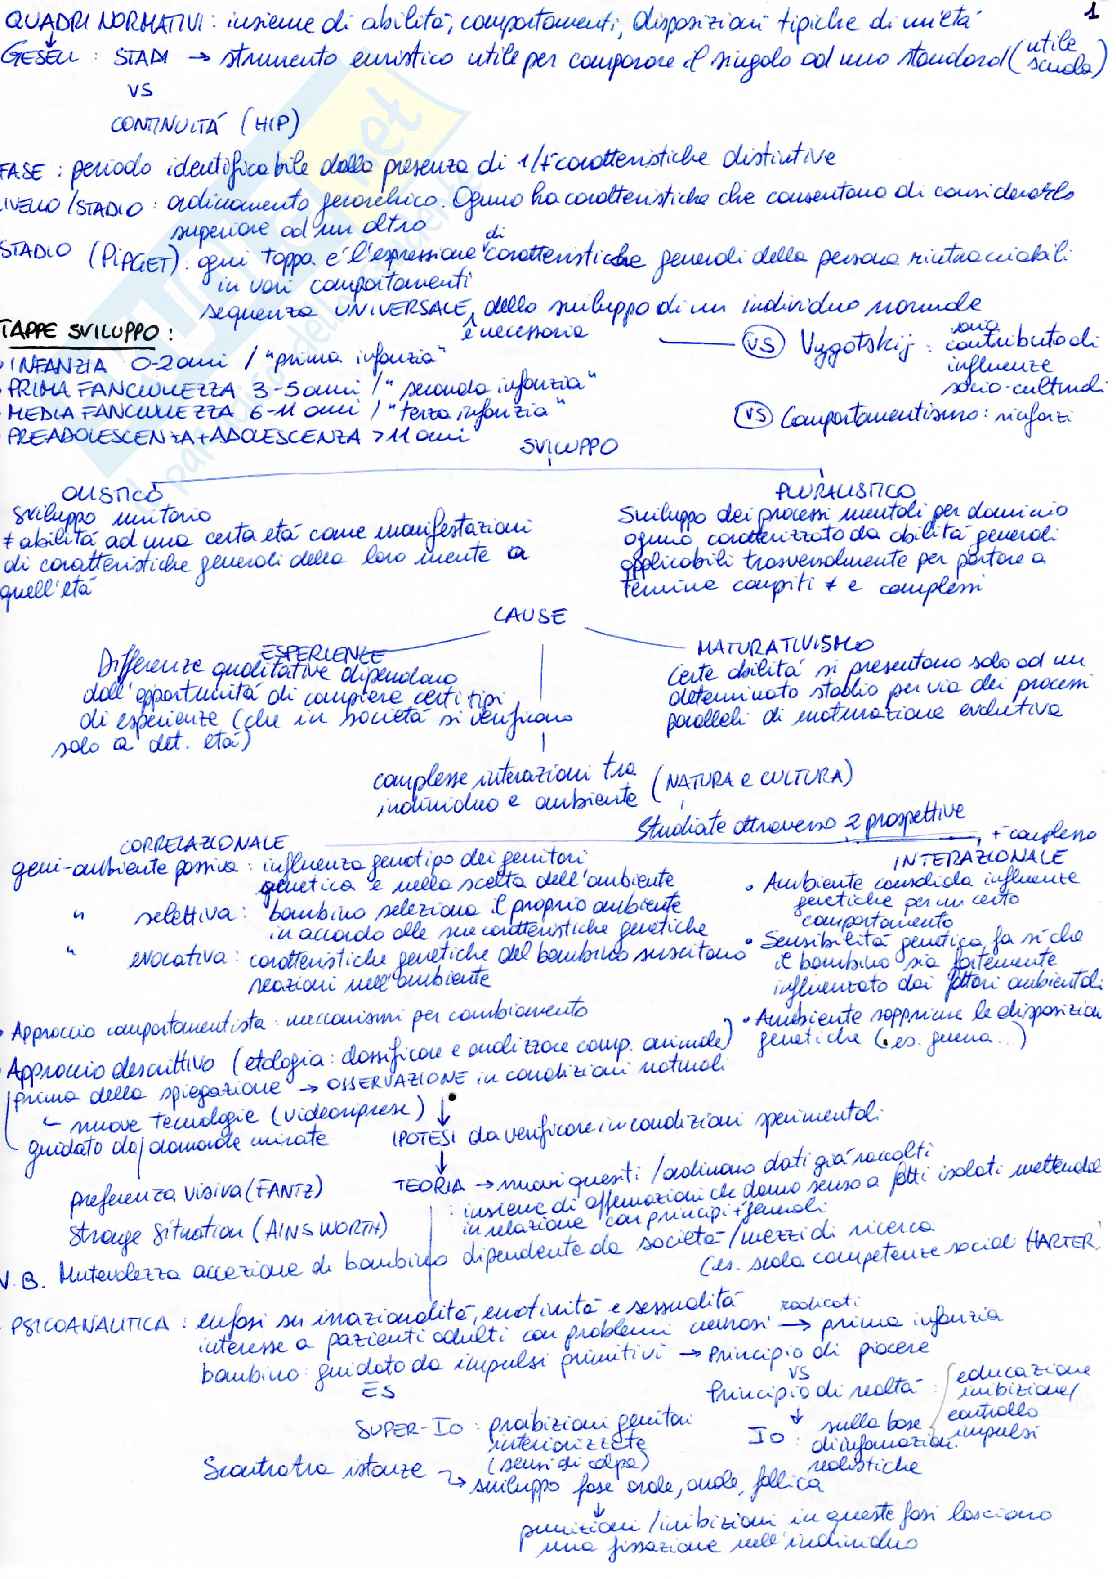 1
QUADRI NORMATIVI: insieme di abilità, comportamenti, disposizioni tipiche di un'età
GESELL: STADI → strumento euristico utile per comparare il singolo ad uno standard (utile scuola)
VS
CONTINUITÀ (HIP)
FASE: periodo identificabile dalla presenza di 1/+ caratteristiche distintive
LIVELLO/STADIO: ordinamento gerarchico. Ognuno ha caratteristiche che consentono di considerarlo
superiore ad un altro
STADIO (PIAGET). ogni tappa è l'espressione di caratteristiche generali della persona rintracciabili
in vari comportamenti
sequenza UNIVERSALE, dello sviluppo di un individuo normale
è necessaria
TAPPE SVILUPPO:
• INFANZIA 0-2 anni / "prima infanzia"
• PRIMA FANCIULLEZZA 3-5 anni / "seconda infanzia"
• MEDIA FANCIULLEZZA 6-11 anni / "terza infanzia"
• PREADOLESCENZA + ADOLESCENZA >11 anni
VS Vygotskij: contributo di
influenze
socio-culturali
VS Comportamentismo: rinforzi
SVILUPPO
OLISTICO
sviluppo unitario
≠ abilità ad una certa età come manifestazioni
di caratteristiche generali della loro mente a
quell'età
PLURALISTICO
Sviluppo dei processi mentali per dominio
ognuno caratterizzato da abilità generali
applicabili trasversalmente per portare a
termine compiti ≠ e complessi
CAUSE
ESPERIENZE
Differenze qualitative dipendono
dall'opportunità di compiere certi tipi
di esperienze (che in società si verificano
solo a det. età)
MATURATIVISMO
Certe abilità si presentano solo ad un
determinato stadio per via dei processi
paralleli di maturazione evolutiva
complesse interazioni tra
individuo e ambiente (NATURA e CULTURA)
Studiate attraverso 2 prospettive
CORRELAZIONALE
geni-ambiente passiva: influenza genotipo dei genitori
genetica e nella scelta dell'ambiente
" selettiva: bambino seleziona il proprio ambiente
in accordo alle sue caratteristiche genetiche
" evocativa: caratteristiche genetiche del bambino suscitano
reazioni nell'ambiente
+ complesso
INTERAZIONALE
• Ambiente consolida influenze
genetiche per un certo
comportamento
• Sensibilità genetica fa sì che
il bambino sia fortemente
influenzato dai fattori ambientali
• Ambiente sopprime le disposizioni
genetiche (es. guerra...)
• Approccio comportamentista: meccanismi per cambiamento
• Approccio descrittivo (etologia: classificare e analizzare comp. animale)
prima della spiegazione → OSSERVAZIONE in condizioni naturali
nuove tecnologie (videoriprese)
guidato da domande mirate
IPOTESI da verificare in condizioni sperimentali
preferenza visiva (FANTZ)
Strange Situation (AINSWORTH)
TEORIA → nuovi quesiti / ordinano dati già raccolti
: insieme di affermazioni che danno senso a fatti isolati mettendoli
in relazione con principi + generali
N.B. Mutevolezza accezione di bambino dipendente da società / mezzi di ricerca
(es. scala competenze sociali HARTER)
PSICOANALITICA: enfasi su irrazionalità, emotività e sessualità
interesse a pazienti adulti con problemi nervosi → radicati prima infanzia
bambino: guidato da impulsi primitivi → Principio di piacere
ES
VS
Principio di realtà: educazione
inibizione/
controllo
impulsi
SUPER-IO: proibizioni genitori
interiorizzate
(sensi di colpa)
IO: sulla base
di informazioni
realistiche
Scontro tra istanze
→ sviluppo fase orale, anale, fallica
punizioni / inibizioni in queste fasi lasciano
una fissazione nell'individuo